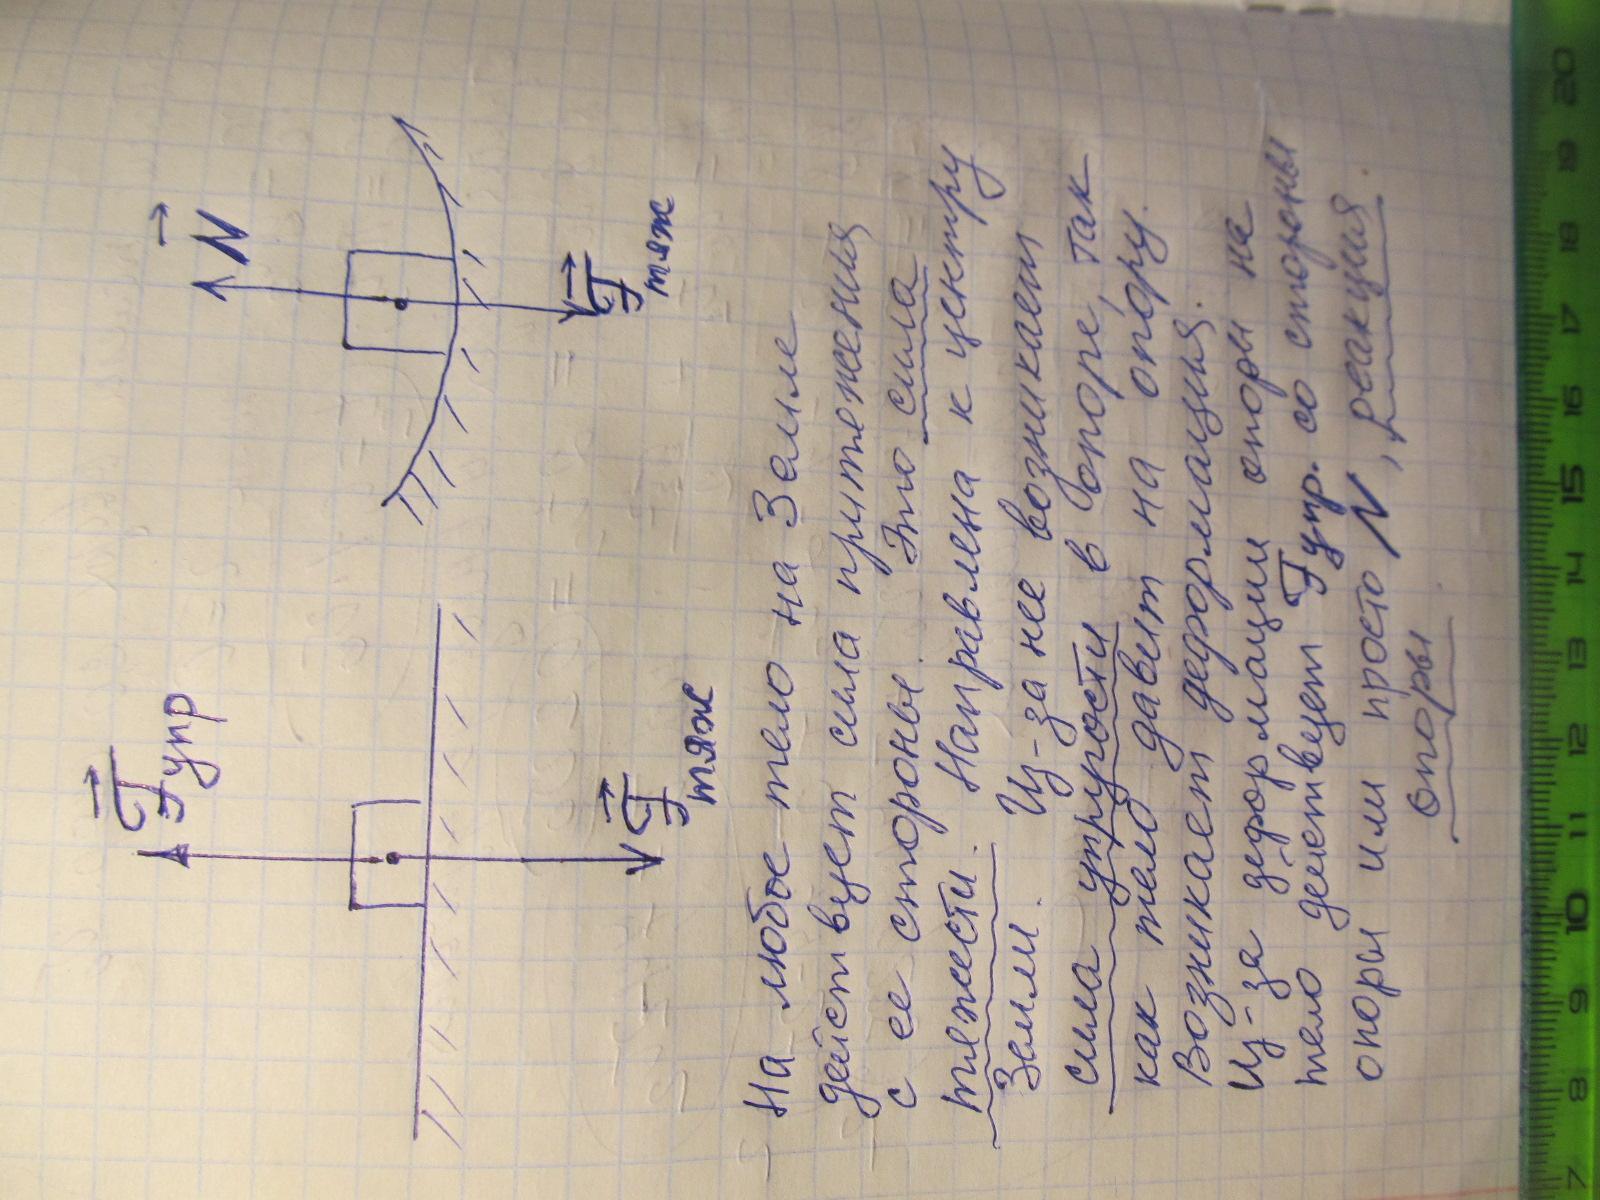 F упр
F тяж
N
F тяж
На любое тело на Земле
действует сила притяжения
с ее стороны. Это сила
тяжести. Направлена к центру
Земли. Из-за нее возникает
сила упругости в опоре, так
как тело давит на опору.
Возникает деформация.
Из-за деформации опоры на
тело действует F упр. со стороны
опоры или просто N, реакция
опоры.
7 8 9 10 11 12 13 14 15 16 17 18 19 20